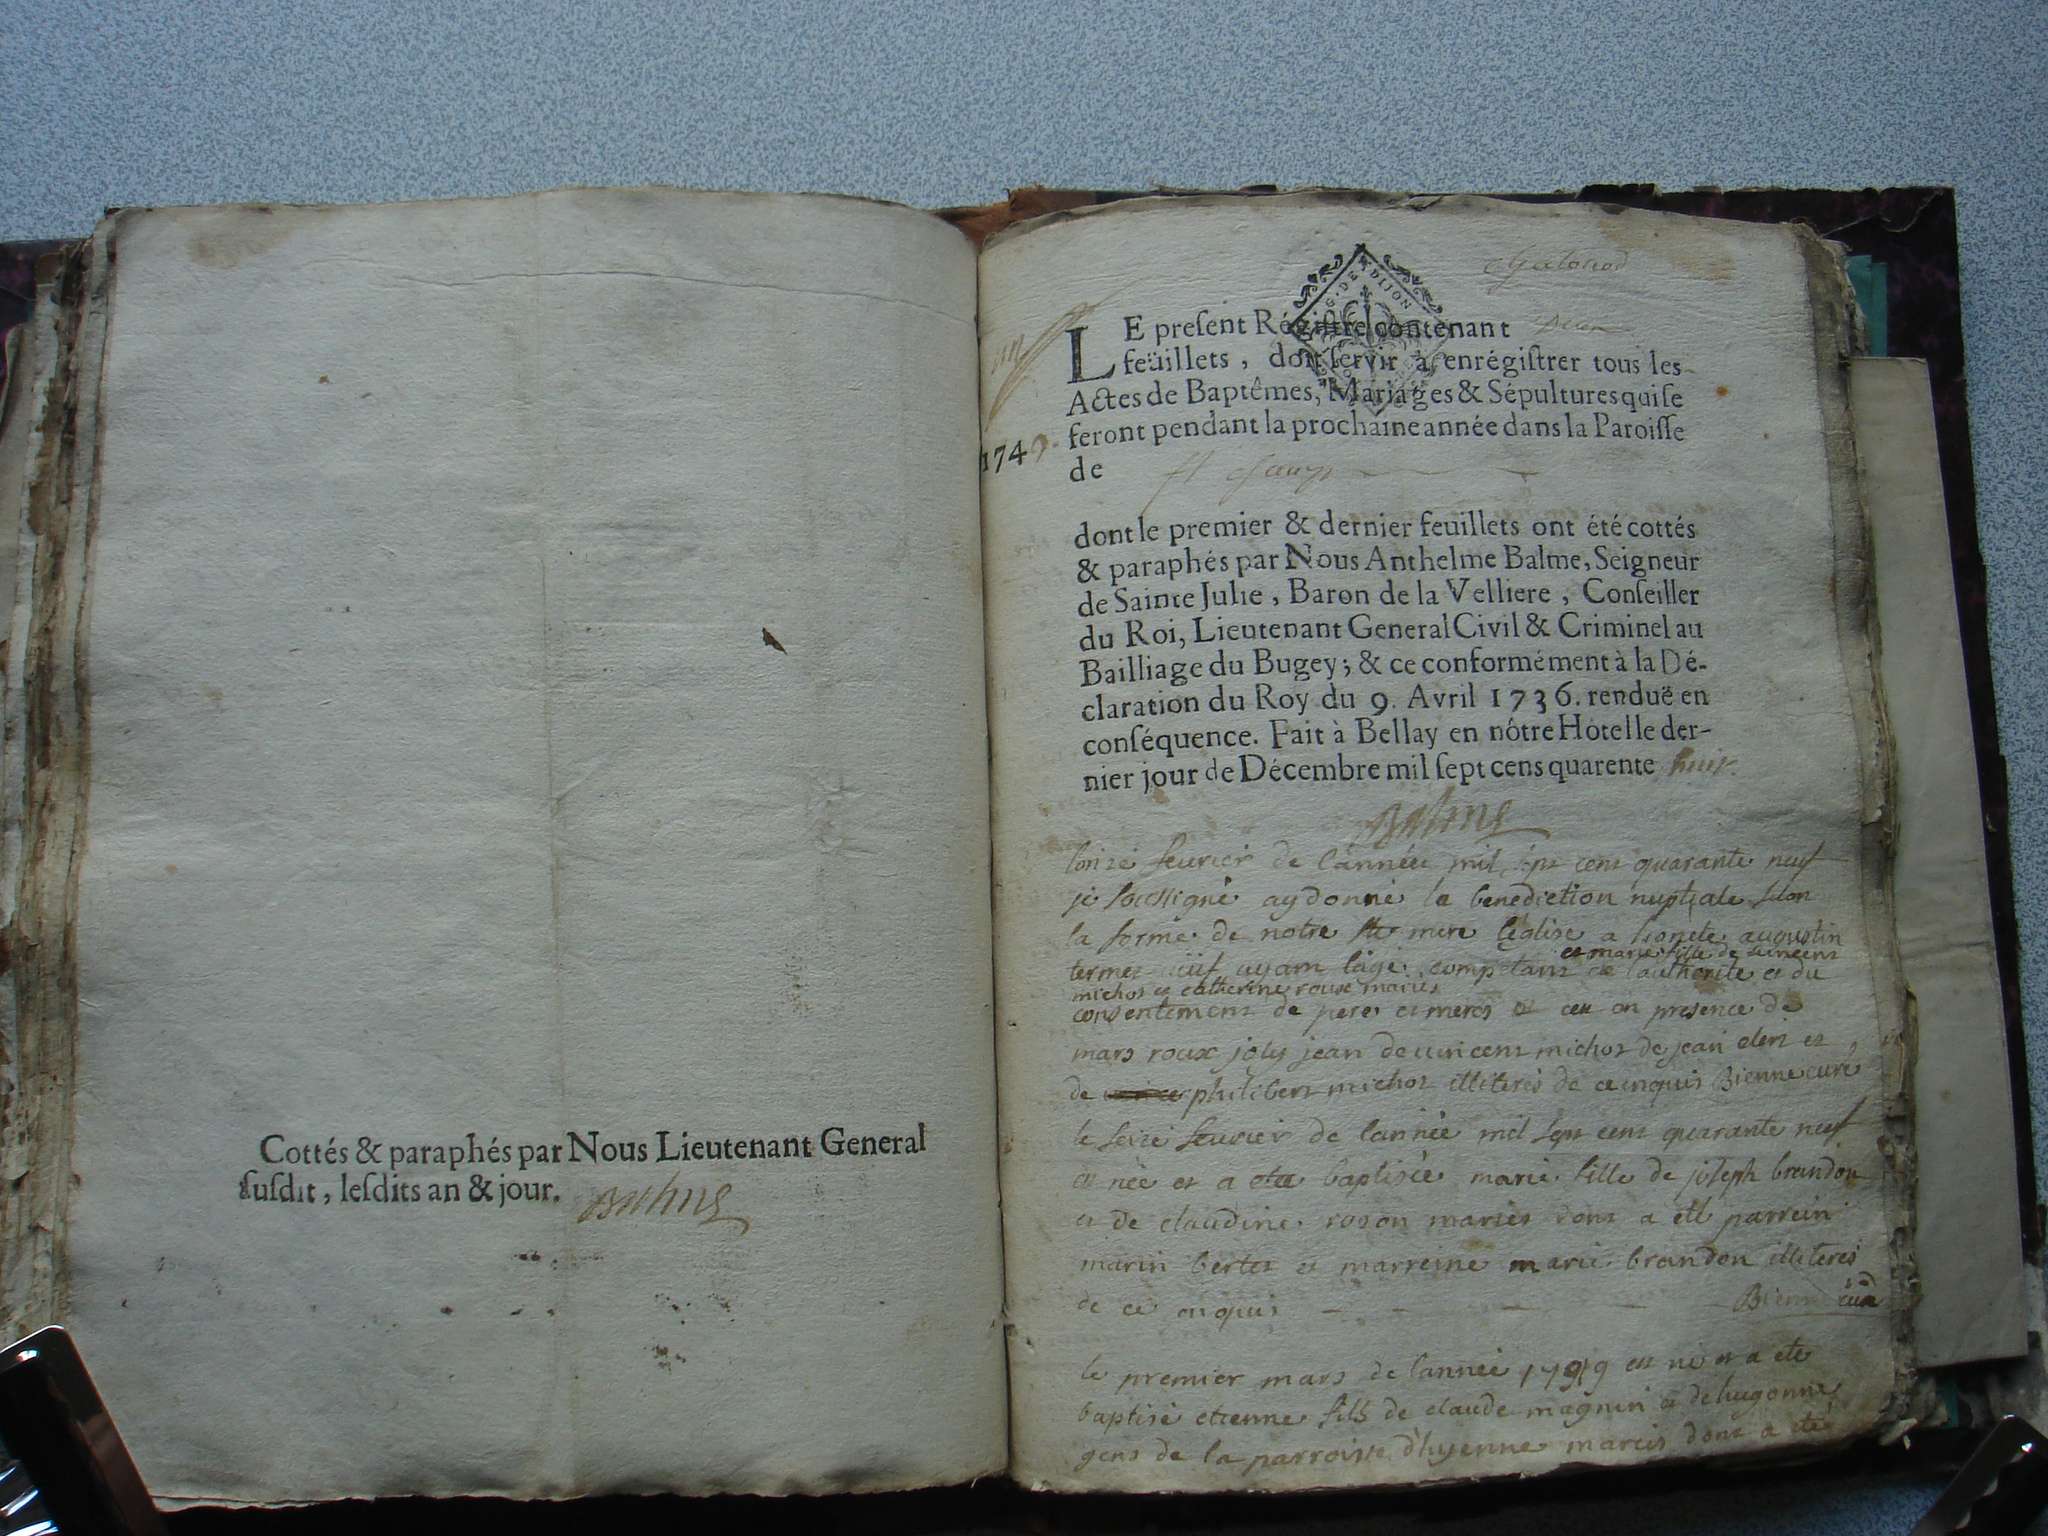 Cottés & paraphés par Nous Lieutenant General
susdit, lesdits an & jour. Balme
G. DE DIJON
LE present Régistre contenant
feüillets, doit servir à enrégistrer tous les
Actes de Baptêmes, Mariages & Sépultures qui se
feront pendant la prochaine année dans la Paroisse
1749.
de
dont le premier & dernier feuillets ont été cottés
& paraphés par Nous Anthelme Balme, Seigneur
de Sainte Julie, Baron de la Velliere, Conseiller
du Roi, Lieutenant General Civil & Criminel au
Bailliage du Bugey; & ce conformément à la Dé-
claration du Roy du 9. Avril 1736. renduë en
conséquence. Fait à Bellay en nôtre Hôtel le der-
nier jour de Décembre mil sept cens quarente huit.
Balme
lonze feurier de lannée mil sept cent quarante neuf
je soussigné ay donné la benediction nuptiale selon
la forme de notre ste mere leglise a honete augustin
et marie fille de
ayant lage competant de lautherite et du
michot et catherine rouse maries
consentement de peres et meres et ceu en presence de
mars roux joly jean de vincent michot de jean et
de philibert michot illiteres de ce enquis Bienne curé
le seize feurier de lannée mil sept cent quarante neuf
est née et a eté baptisée marie fille de joseph brandon
et de claudine roson mariés dont a eté parrein
marin bertet et marreine marie brandon illiteres
de ce enquis - - - - Bienne curé
le premier mars de lannee 1749 est né et a eté
baptisé etienne fils de claude magnin et de hugonne
gens de la parroisse dhyenne mariés dont a eté